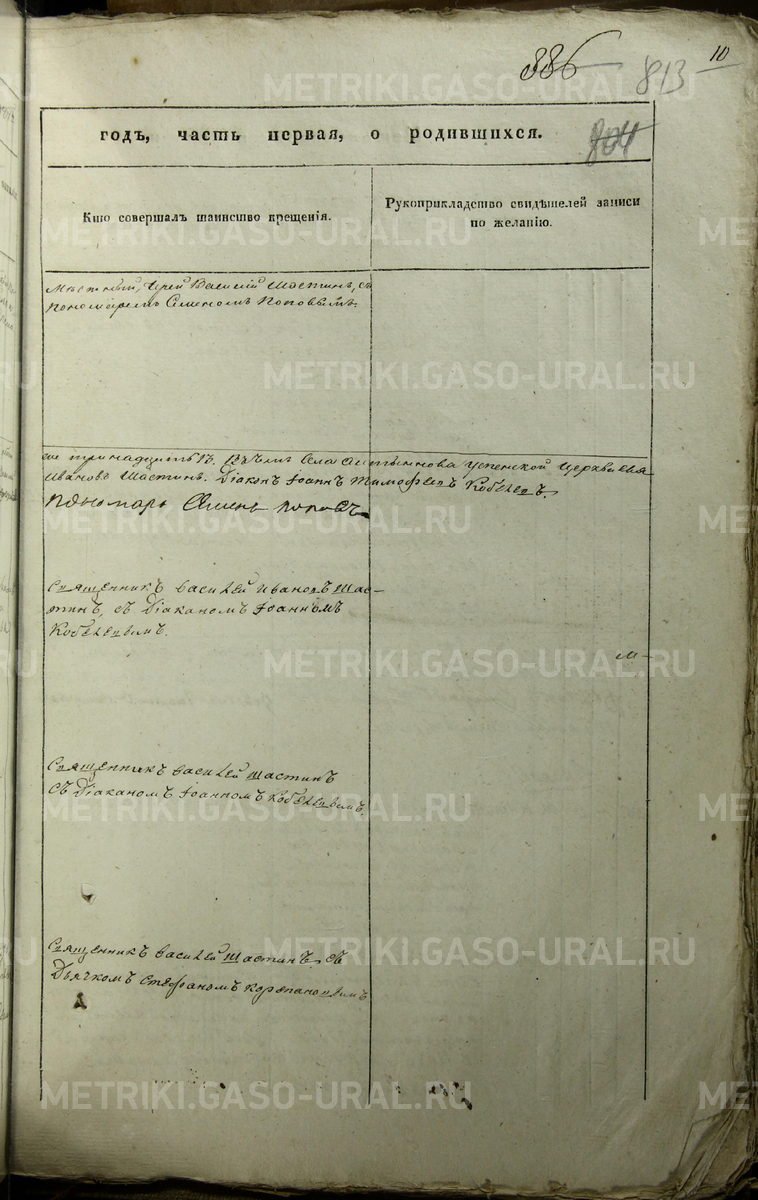 10
886
813
804
годъ, часть первая, о родившихся.
Кто совершалъ таинство крещенія.
Рукоприкладство свидѣтелей записи по желанію.
Мѣстный, Іерей Василій Шастинъ, съ
пономаремъ Семеномъ Поповымъ.
тринадцать. Села Успенской Церкви
Ивановъ Шастинъ. Діаконъ Іоаннъ Тимофеевъ Кобелевъ.
пономарь Семенъ Поповъ
Священникъ василей Ивановъ Шас-
тинъ, съ Діакономъ Іоанномъ
Кобелевымъ.
Священникъ василей Шастинъ
съ Діакономъ Іоанномъ Кобелевымъ.
Священникъ василей Шастинъ съ
Дьячкомъ Стефаномъ Корепановымъ
METRIKI.GASO-URAL.RU